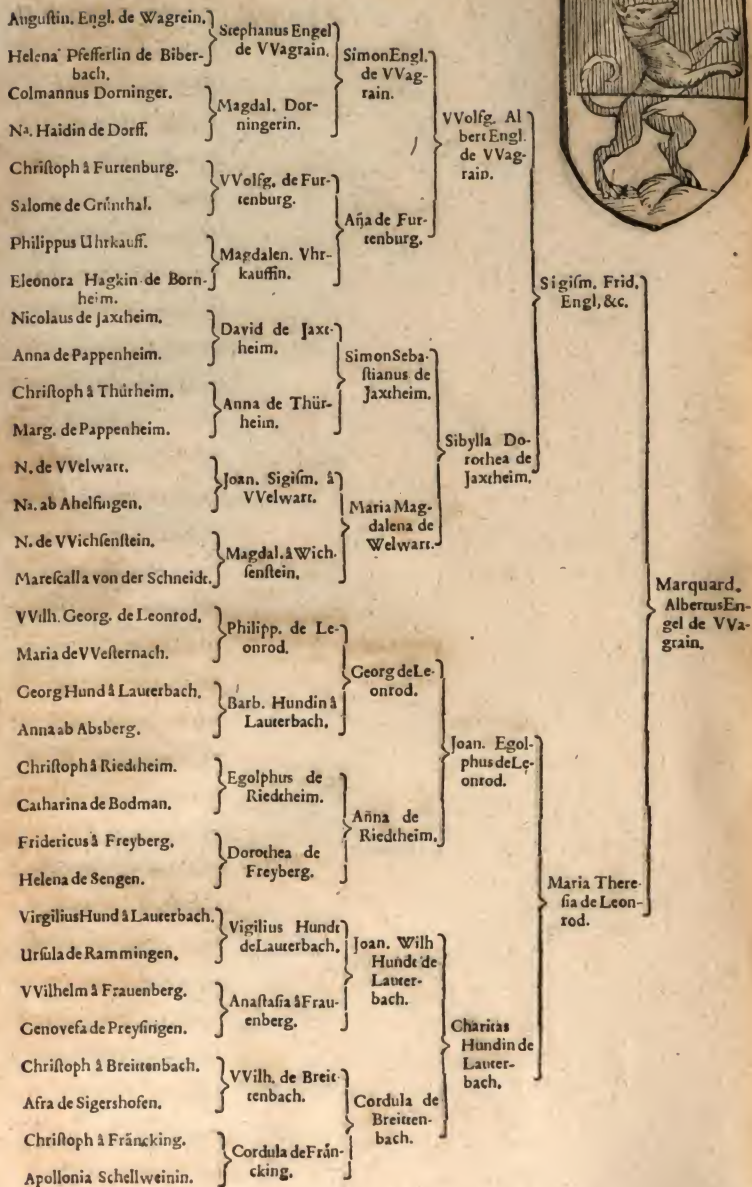 Auguſtin. Engl. de Wagrein.
Helena Pfefferlin de Biber-
bach.
Colmannus Dorninger.
Na. Haidin de Dorff.
Chriſtoph â Furtenburg.
Salome de Grúnthal.
Philippus Uhrkauff.
Eleonora Hagkin de Born-
heim.
Nicolaus de Jaxtheim.
Anna de Pappenheim.
Chriſtoph â Thúrheim.
Marg. de Pappenheim.
N. de VVelwart.
Na. ab Ahelfingen.
N. de VVichſenſtein.
Mareſcalla von der Schneidt.
VVilh. Georg. de Leonrod.
Maria de VVeſternach.
Georg Hund â Lauterbach.
Anna ab Absberg.
Chriſtoph â Riedtheim.
Catharina de Bodman.
Fridericus â Freyberg.
Helena de Sengen.
Virgilius Hund â Lauterbach.
Urſula de Rammingen.
VVilhelm â Frauenberg.
Genovefa de Preyſingen.
Chriſtoph â Breittenbach.
Afra de Sigershofen.
Chriſtoph â Fráncking.
Apollonia Schellweinin.
Stephanus Engel
de VVagrain.
Magdal. Dor-
ningerin.
VVolfg. de Fur-
tenburg.
Magdalen. Vhr-
kauffin.
David de Jaxt-
heim.
Anna de Thür-
heim.
Joan. Sigiſm. â
VVelwart.
Magdal. â Wich-
ſenſtein.
Philipp. de Le-
onrod.
Barb. Hundin â
Lauterbach.
Egolphus de
Riedtheim.
Dorothea de
Freyberg.
Vigilius Hundt
de Lauterbach.
Anaſtaſia â Frau-
enberg.
VVilh. de Breit-
tenbach.
Cordula de Frán-
cking.
Simon Engl.
de VVag-
rain.
Aña de Fur-
tenburg.
Simon Seba-
ſtianus de
Jaxtheim.
Maria Mag-
dalena de
Welwart.
Georg de Le-
onrod.
Añna de
Riedtheim.
Joan. Wilh
Hundt de
Lauter-
bach.
Cordula de
Breitten-
bach.
VVolfg. Al
bert Engl.
de VVag-
rain.
Sibylla Do-
rothea de
Jaxtheim.
Joan. Egol-
phus de Le-
onrod.
Charitas
Hundin de
Lauter-
bach.
Sigiſm. Frid.
Engl, &c.
Maria There-
ſia de Leon-
rod.
Marquard.
Albertus En-
gel de VVa-
grain.